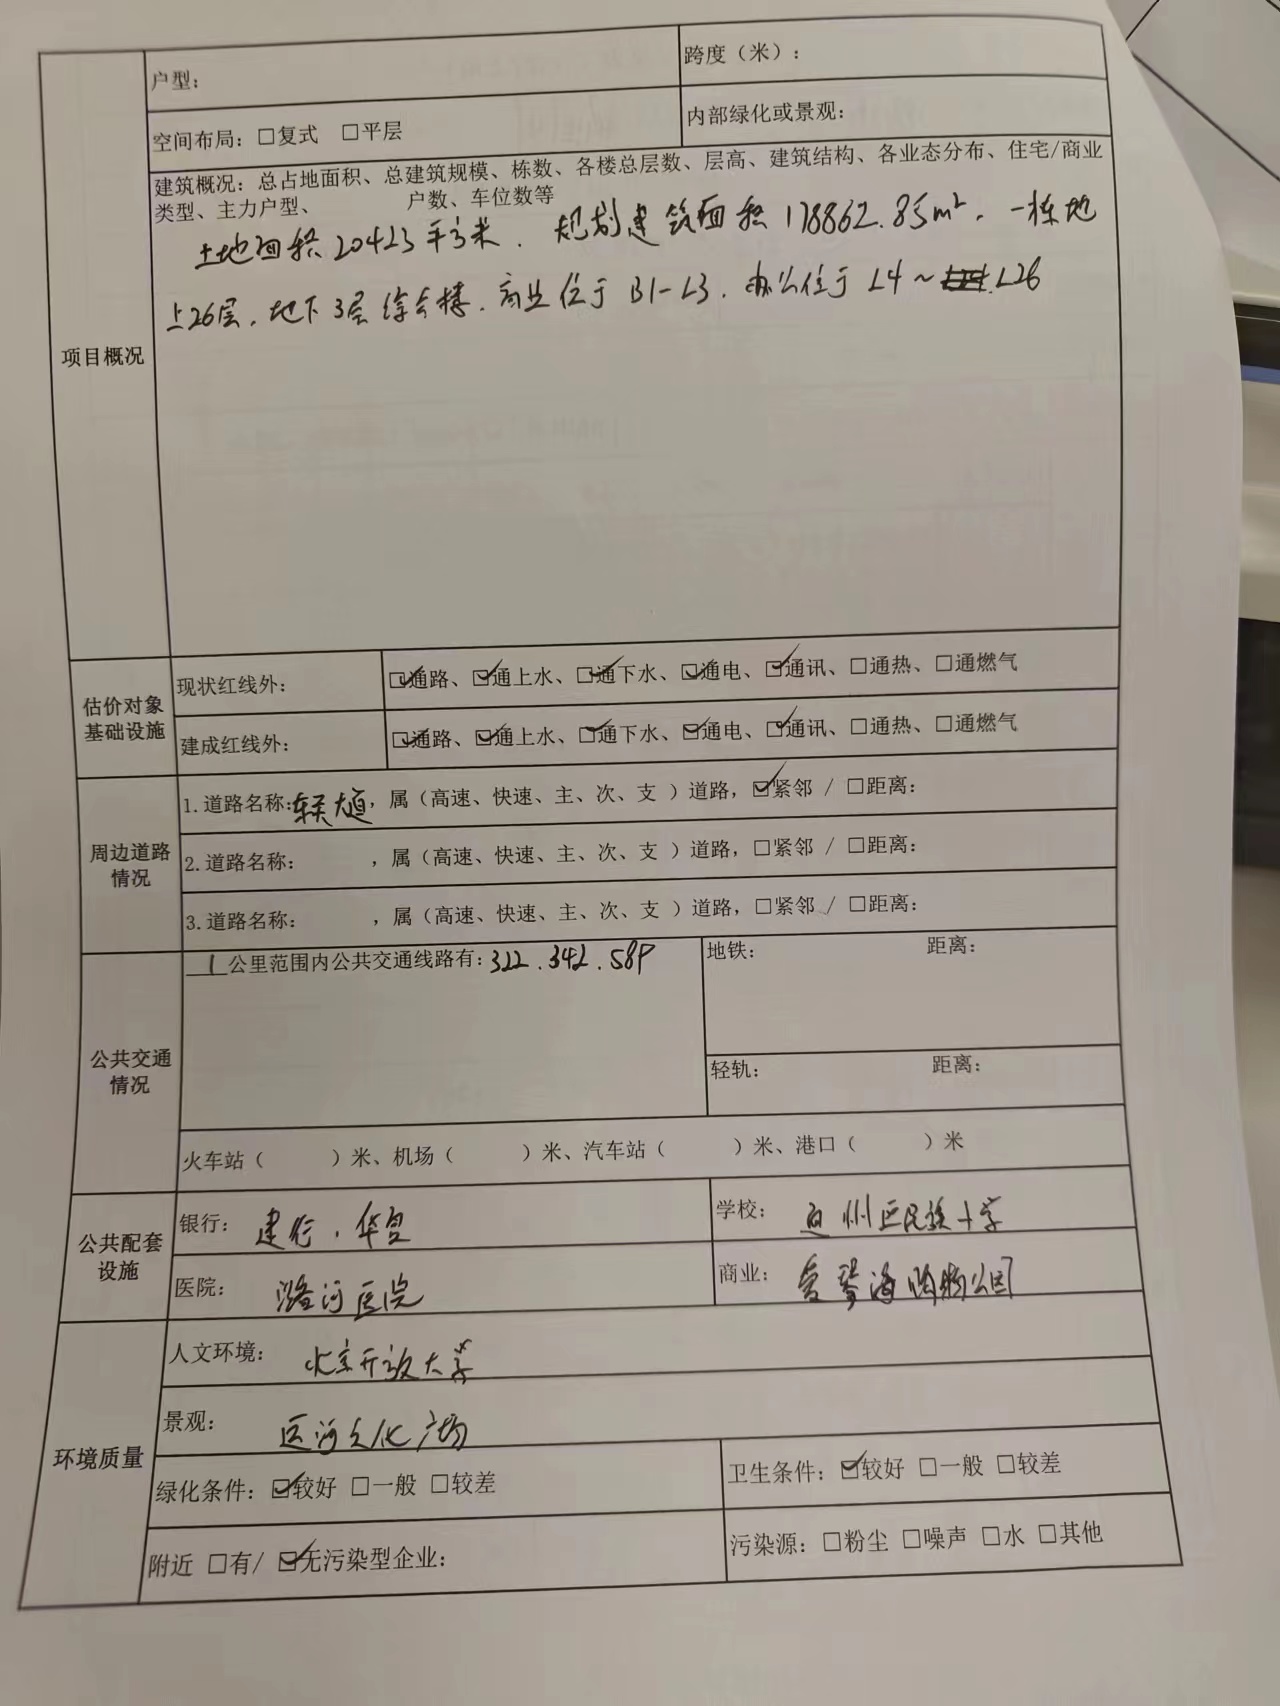 户型：
跨度（米）：
空间布局：□复式 □平层
内部绿化或景观：
建筑概况：总占地面积、总建筑规模、栋数、各楼总层数、层高、建筑结构、各业态分布、住宅/商业
类型、主力户型、 户数、车位数等
土地面积20423平方米．规划建筑面积178862.85m²．一栋地
上26层．地下3层综合楼．商业位于B1-L3．办公位于L4～L26
项目概况
估价对象
基础设施
现状红线外：
☑通路、☑通上水、☑通下水、☑通电、☑通讯、□通热、□通燃气
建成红线外：
☑通路、☑通上水、☑通下水、☑通电、☑通讯、□通热、□通燃气
周边道路
情况
1.道路名称：，属（高速、快速、主、次、支 ）道路，☑紧邻 / □距离：
2.道路名称： ，属（高速、快速、主、次、支 ）道路，□紧邻 / □距离：
3.道路名称： ，属（高速、快速、主、次、支 ）道路，□紧邻 / □距离：
公共交通
情况
1公里范围内公共交通线路有：322．342．589
地铁： 距离：
轻轨： 距离：
火车站（ ）米、机场（ ）米、汽车站（ ）米、港口（ ）米
公共配套
设施
银行：建行．华夏
学校：通州区民族小学
医院：潞河医院
商业：爱琴海购物公园
环境质量
人文环境：北京开放大学
景观：运河文化广场
绿化条件：☑较好 □一般 □较差
卫生条件：☑较好 □一般 □较差
附近 □有/ ☑无污染型企业：
污染源：□粉尘 □噪声 □水 □其他